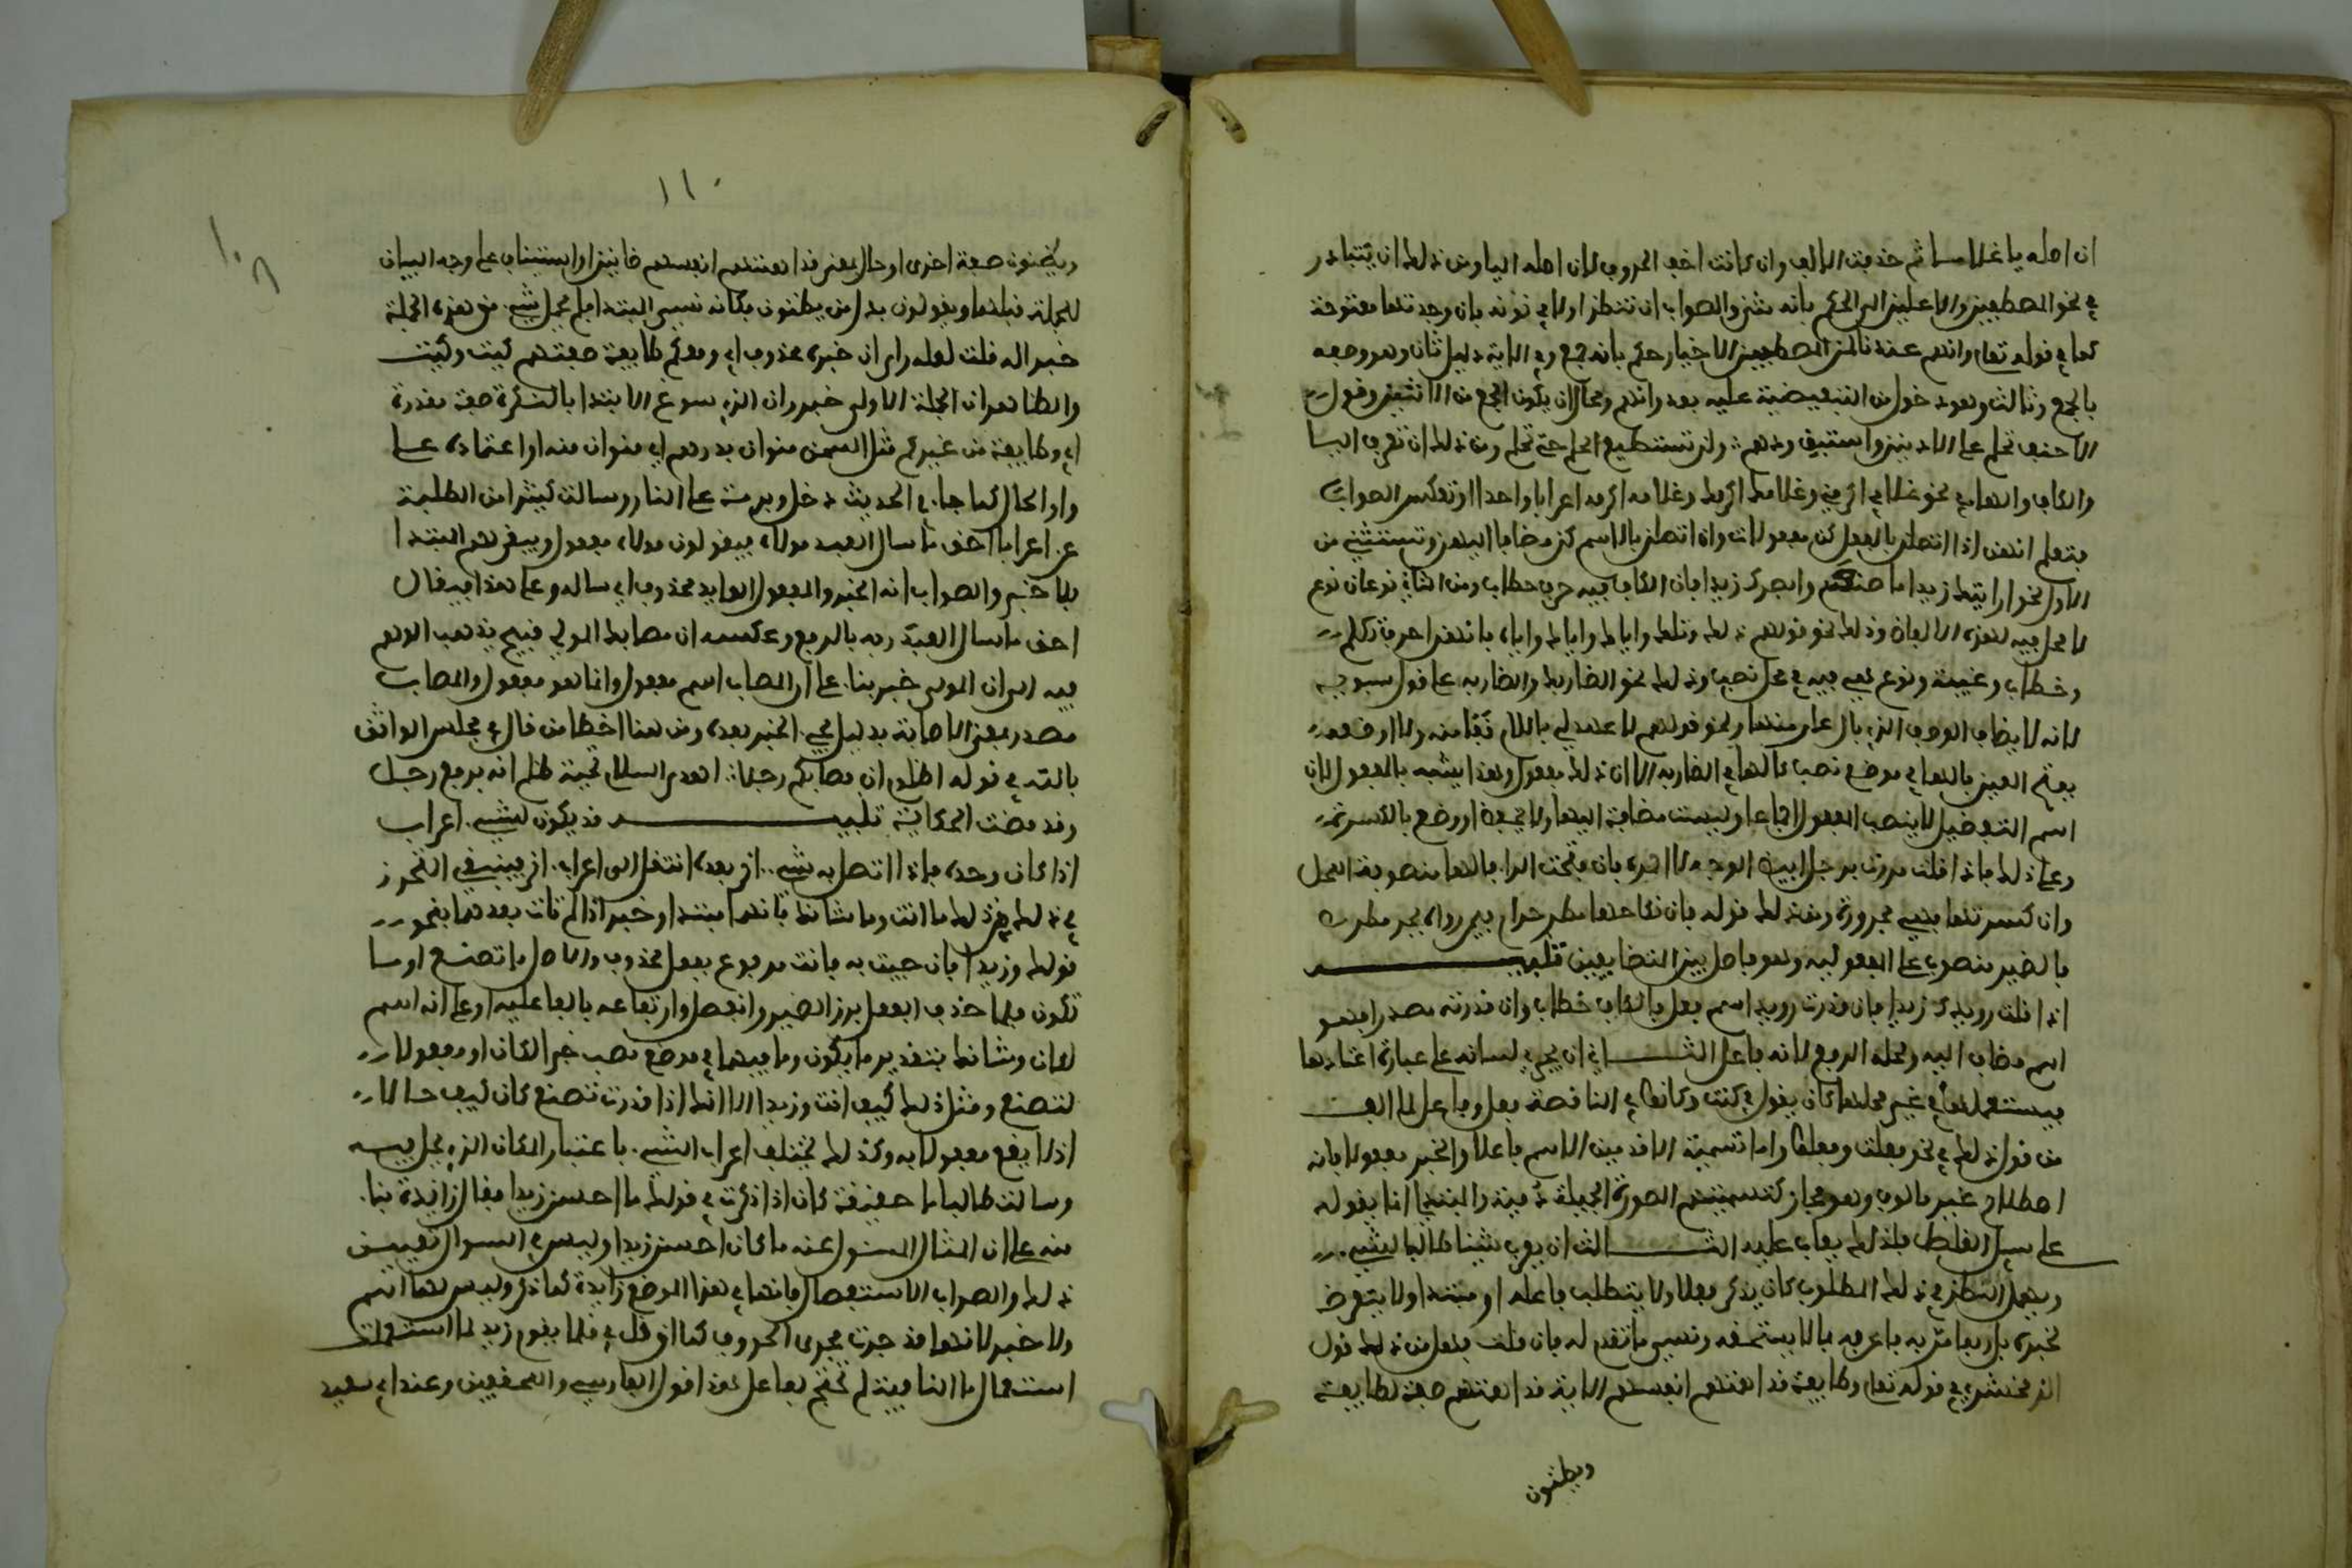 ان اصله يا غلاما ثم حذفت الالف وان كانت اخف الحروف لان اصلها اليا ومن ذلك ان يتبادر
في نحو المصطفين والاعلين الى الحكم بانه مثنى والصواب ان تنظر اولا في نونه فان وجدتها مفتوحة
كما في قوله تعلى وانهم عندنا لمن المصطفين الاخيار حكم بانه جمع وفي الاية دليل ثان وهو وصفه
بالجمع وثالث وهو دخول من التبعيضية عليه بعد وانهم ومحال ان يكون الجمع من الاثنين وقول
الاحنف تحلم على الادنين واستبق ودهم ولن تستطيع الحلم حتى تحلما ومن ذلك ان تعرب اليا
والكاف والها في نحو غلامي اكرمني وغلامك اكرمك وغلامه اكرمه اعرابا واحدا او تعكس الصواب
فتعلم انهن اذا اتصلن بالفعل كن مفعولات وان اتصلن بالاسم كن مضافا اليهن وتستثنى من
الاول نحو ارايتك زيدا ما صنع وابصرك زيدا فان الكاف فيه حرف خطاب ومن الثاني نوعان نوع
لا محل فيه لهذه الالفاظ وذلك نحو قولهم ذلك وتلك واياي واياك واياه فانهن احرف تكلم
وخطاب وغيبة ونوع هي فيه في محل نصب وذلك نحو الضاربك والضاربه على قول سيبويه
لانه لا يضاف الوصف الذي بال الى عار منها ونحو قولهم لا عهد لي بالام قفا منه ولا اوضعه
بفتح العين فالها في موضع نصب كالها في الضاربه الا ان ذلك مفعول وهذا يشبه بالمفعول لان
اسم التفضيل لا ينصب المفعول اجماعا وليست مضافا اليها والا لخفض اوضع بالكسرة
وعلى ذلك فاذا قلت مررت برجل ابيض الوجه لا احمره فان فتحت الرا فالها منصوبة المحل
وان كسرتها فهي مجرورة ومن ذلك قوله فان نكاحها مطر حرام فيمن رواه بجر مطر
فالضمير منصوب على المفعولية وهو فاصل بين المتضايفين تنبيه
اذا قلت رويدك زيدا فان قدرت رويدا اسم فعل فالكاف خطاب وان قدرته مصدرا فهو
اسم مضاف اليه ومحله الرفع لانه فاعل الثاني ان يجري لسانه على عبارة اعتادها
فيستعملها في غير محلها كان يقول في كنت وكانوا في الناقصة فعل وفاعل لما الف
من قول ذلك في نحو فعلت وفعلوا واما تسمية الاقدمين الاسم فاعلا والخبر مفعولا فانه
اصطلاح غير مالوف وهو مجاز كتسميتهم الصورة الجميلة دمية والمبتدي انما يقوله
على سبيل الغلط فلذلك يعاب عليه الثالث ان يعرب شيئا طالبا لشي
ويهمل النظر في ذلك المطلوب كان يذكر فعلا ولا يتطلب فاعله او مبتدا ولا يتعرض
لخبره بل ربما مر به فاعربه بما لا يستحقه ونسي ما تقدم له فان قلت فهل من ذلك قول
الزمخشري في قوله تعلى وطايفة قد اهمتهم انفسهم الاية قد اهمتهم صفة لطايفة
ويظنون
١١٠
ويظنون صفة اخرى او حال بمعنى قد اهمتهم انفسهم ظانين او استيناف على وجه البيان
للجملة قبلها ويقولون بدل من يظنون فكانه نسي المبتدا فلم يجعل شي من هذه الجملة
خبرا له قلت لعله راى ان خبره محذوف اي ومعكم طايفة صفتهم كيت وكيت
والظاهر ان الجملة الاولى خبر وان الذي سوغ الابتدا بالنكرة صفة مقدرة
اي وطايفة من غيركم مثل السمن منوان بدرهم اي منوان منه او اعتماده على
واو الحال كما جا في الحديث دخل وبرمة على النار وسالت كثيرا من الطلبة
عن اعراب احق ما سال العبد مولاه فيقولون مولاه مفعول ويبقى لهم المبتدا
بلا خبر والصواب انه الخبر والمفعول العايد محذوف اي ساله وعلى هذا فيقال
احق ما سال العبد ربه بالرفع وعكسه ان مصابك المولى قبيح يذهب الوهم
فيه الى ان المولى خبر بنا على ان المصاب اسم مفعول وانما هو مفعول والمصاب
مصدر بمعنى الاصابة بدليل مجي الخبر بعده ومن هنا اخطا من قال في مجلس الواثق
بالله في قوله اظلوم ان مصابكم رجلا اهدى السلام تحية ظلم انه برفع رجل
وقد مضت الحكاية تنبيه قد يكون للشي اعراب
اذا كان وحده فاذا اتصل به شي اخر بعده انتقل الى اعراب اخر فينبغي التحرز
في ذلك من ذلك ما انت وما شانك فانهما مبتدا وخبر اذا لم تات بعدهما بنحو
قولك وزيدا فان جيت به فانت مرفوع بفعل محذوف والاصل ما تصنع او ما
تكون فلما حذف الفعل برز الضمير وانفصل وارتفاعه بالفاعلية او على انه اسم
لكان وشانك بتقدير ما يكون وما فيهما في موضع نصب خبرا لكان او مفعولا
لتصنع ومثل ذلك كيف انت وزيدا الا انك اذا قدرت تصنع كان كيف حالا
اذ لا يقع مفعولا به وكذلك يختلف اعراب الشي باعتبار المكان الذي يحل فيه
وسالت طالبا ما حقيقة كان اذا ذكرت في قولك ما احسن زيدا فقال زايدة بنا
منه على ان المثال المسئول عنه ما كان احسن زيدا وليس في السوال تعيين
ذلك والصواب الاستفصال فانها في هذا الموضع زايدة كما ذكر وليس لها اسم
ولا خبر لانها قد جرت مجرى الحروف كما ان قل في قلما يقوم زيد لما استعملت
استعمال ما النافية لم تحتج لفاعل هذا قول الفارسي والمحققين وعند ابي سعيد